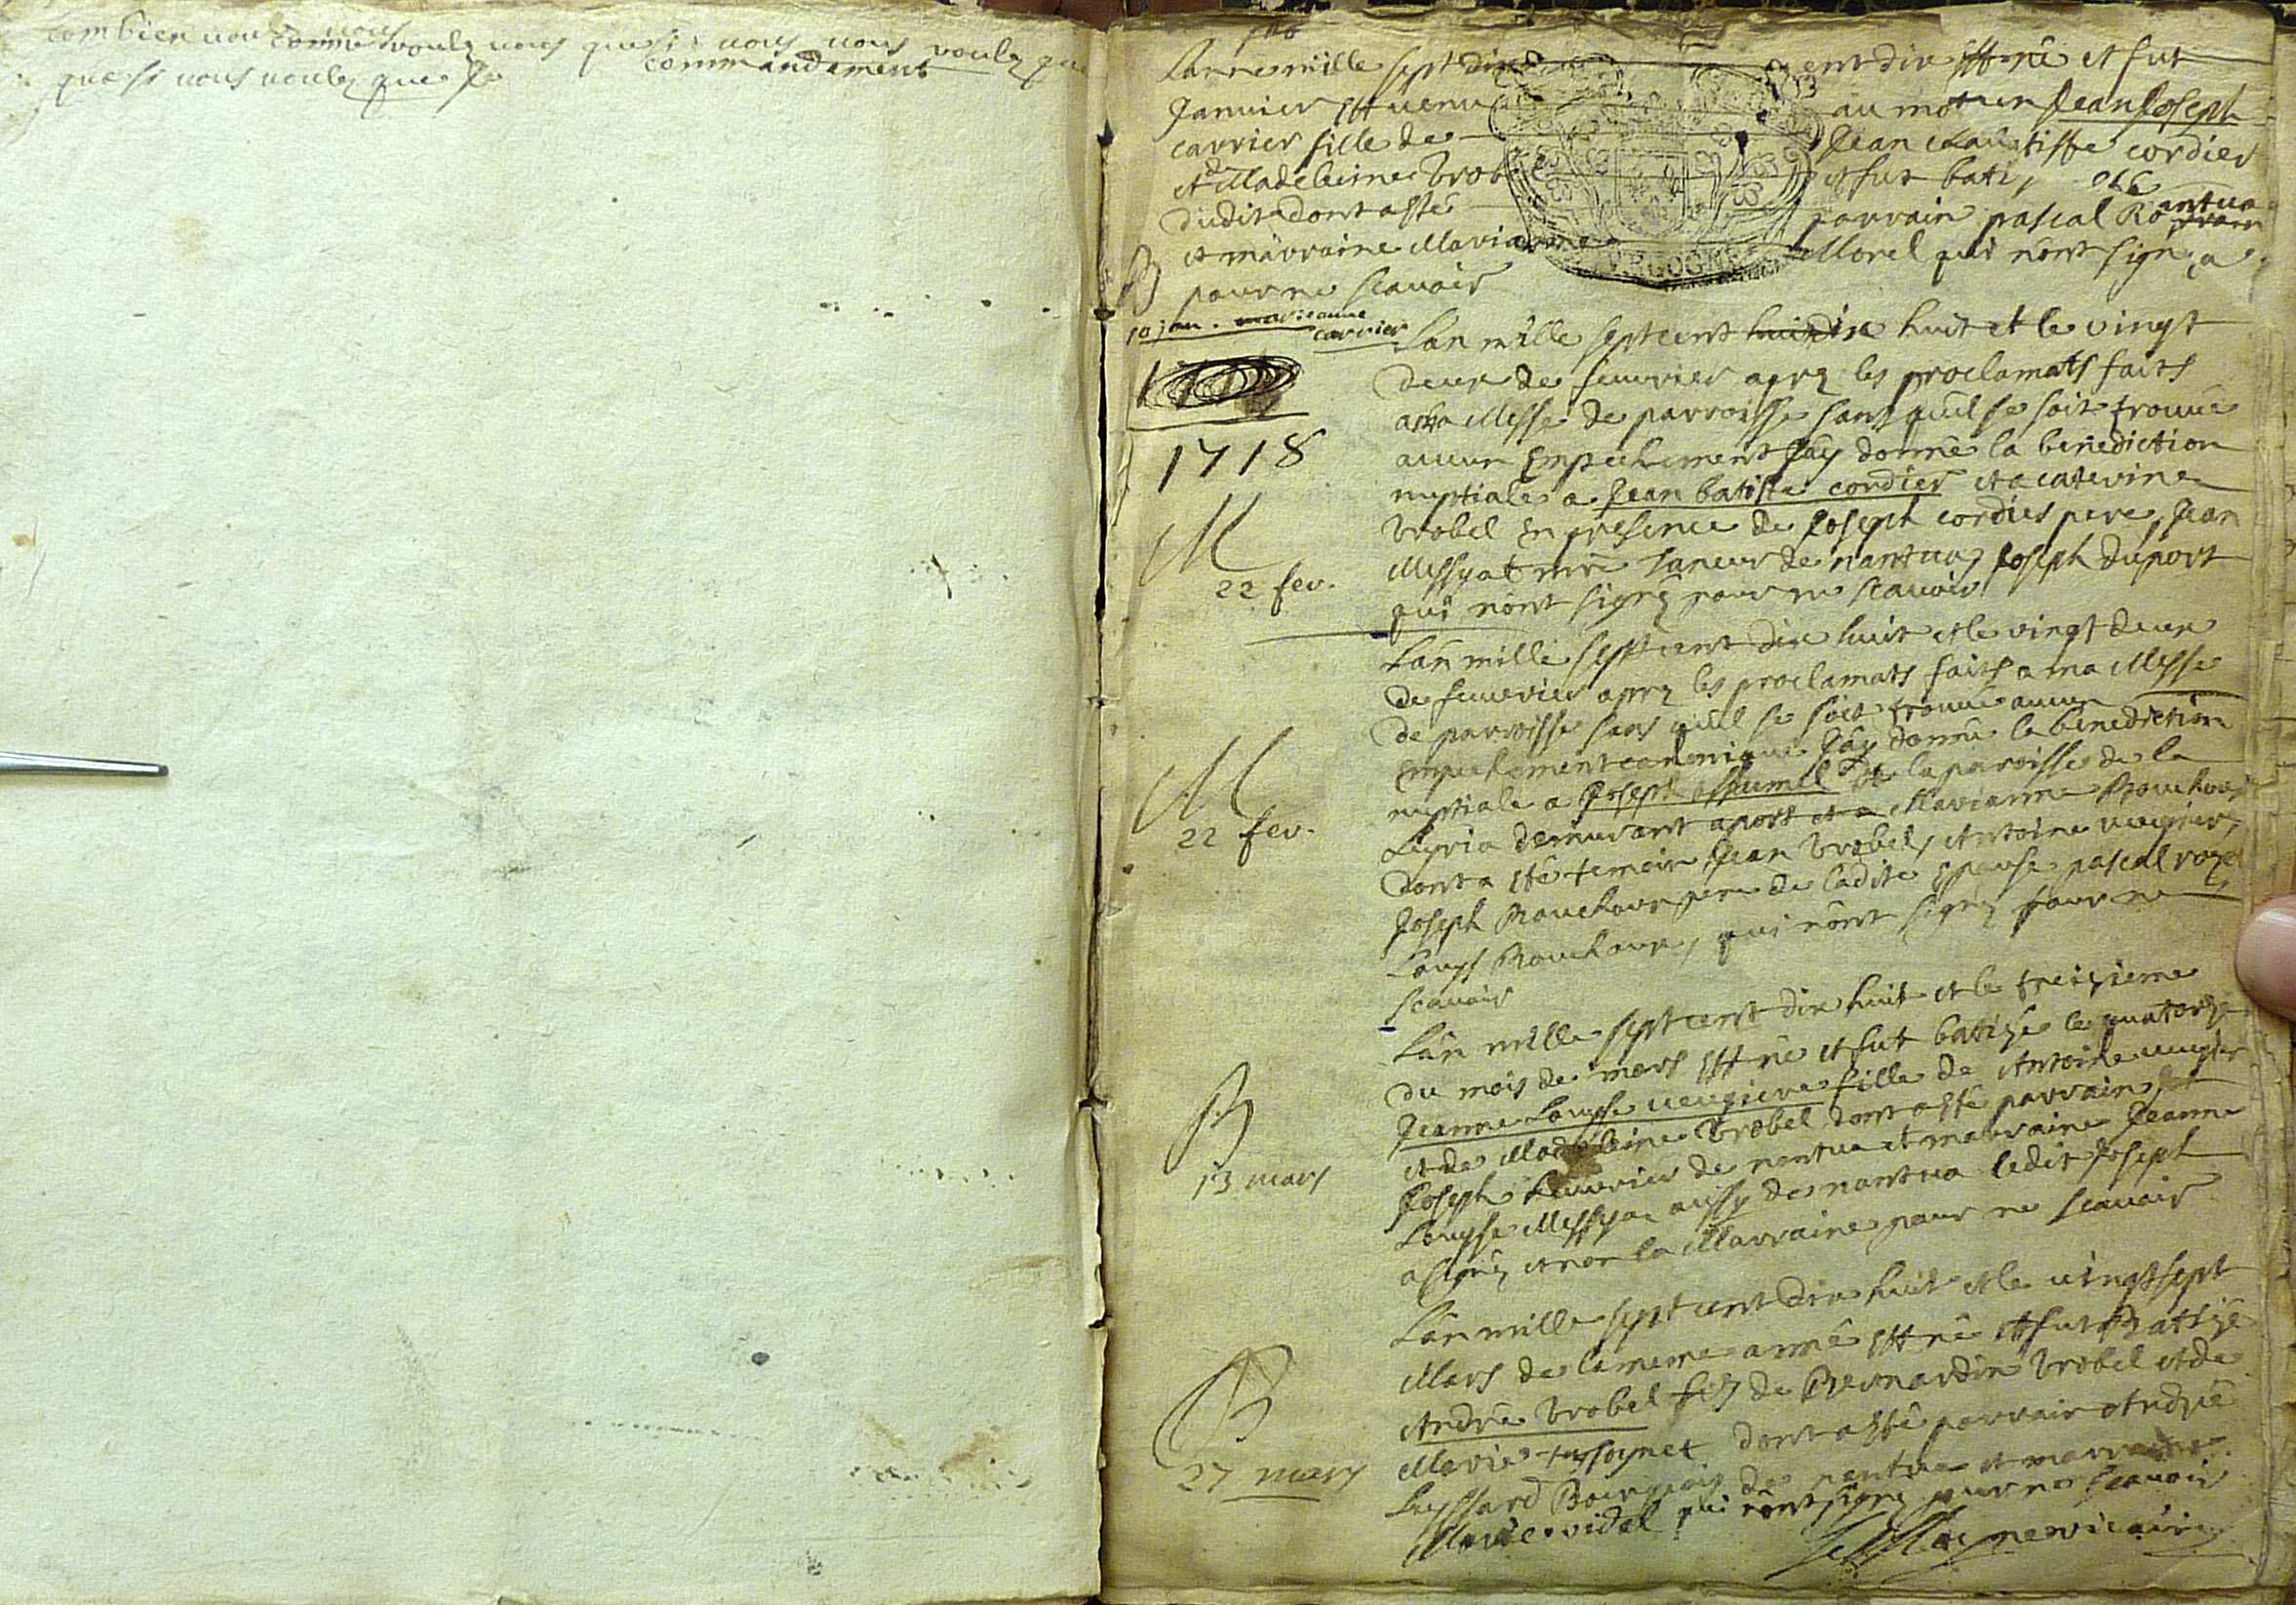 Combien vous voulez vous que si vous vous voulez que
comme vous
commandement
que si vous voulez que Je
L'anne mille sept cent dix
ent dix est né et fut
Janvier est venu
au mo Jean Joseph
carrier fille de
Jean Bautiste cordier
et Madeleine Vrobel
et fut bati
dudit dont a esté
parrain pascal Ro nantua
et marraine Marianne
Morel qui n'ont signé a
BOURGOGNE
B
pour ne scavoir
10 jan. marianne
carrier
L'an mille sept cent dix huit et le vingt
deux de feuvrier aprez les proclamats faits
a ma Messe de parroisse sans qu'il se soit trouvé
1718
aucun Empechement J'ay donné la benediction
nuptiale a Jean batiste cordier et a caterine
M
22 fev.
Vrobel En presence de Joseph cordier pere, Jean
Messyat mre taneur de nantua, Joseph duport
qui n'ont signez pour ne scavoir
L'an mille sept cent dix huit et le vingt deux
de feuvrier aprez les proclamats faits a ma Messe
de parroisse sans qu'il se soit trouvé aucun
Empechement canonique J'ay donné la benediction
M
22 fev.
nuptiale a Joseph de la paroisse de la
Leyria demeurant a port et a Marianne Bouchour
dont a esté temoin Jean Vrobel, Antoine
Joseph Bouchour pere de ladite Epouse pascal roze
Louys Bouchour, qui n'ont signez pour ne
scavoir
L'an mille sept cent dix huit et le treizieme
du mois de mars est né et fut batizé le quatorze
B
13 mars
Jeanne Louyse fille de Antoine
et de Madeleine Vrobel dont a esté parrain
Joseph de nantua et marraine Jeanne
Louyse Messya aussy de nantua ledit Joseph
a signez et non la Marraine pour ne scavoir
L'an mille sept cent dix huit et le vingt sept
Mars de la meme anné est né et fut Battizé
B
27 mars
André Vrobel filz de Bernardin Vrobel et de
Marie dont a esté parrain André
Leyssard Bourgeois de nantua et marraine
Marie vidal qui n'ont signé pour ne scavoir
vicaire